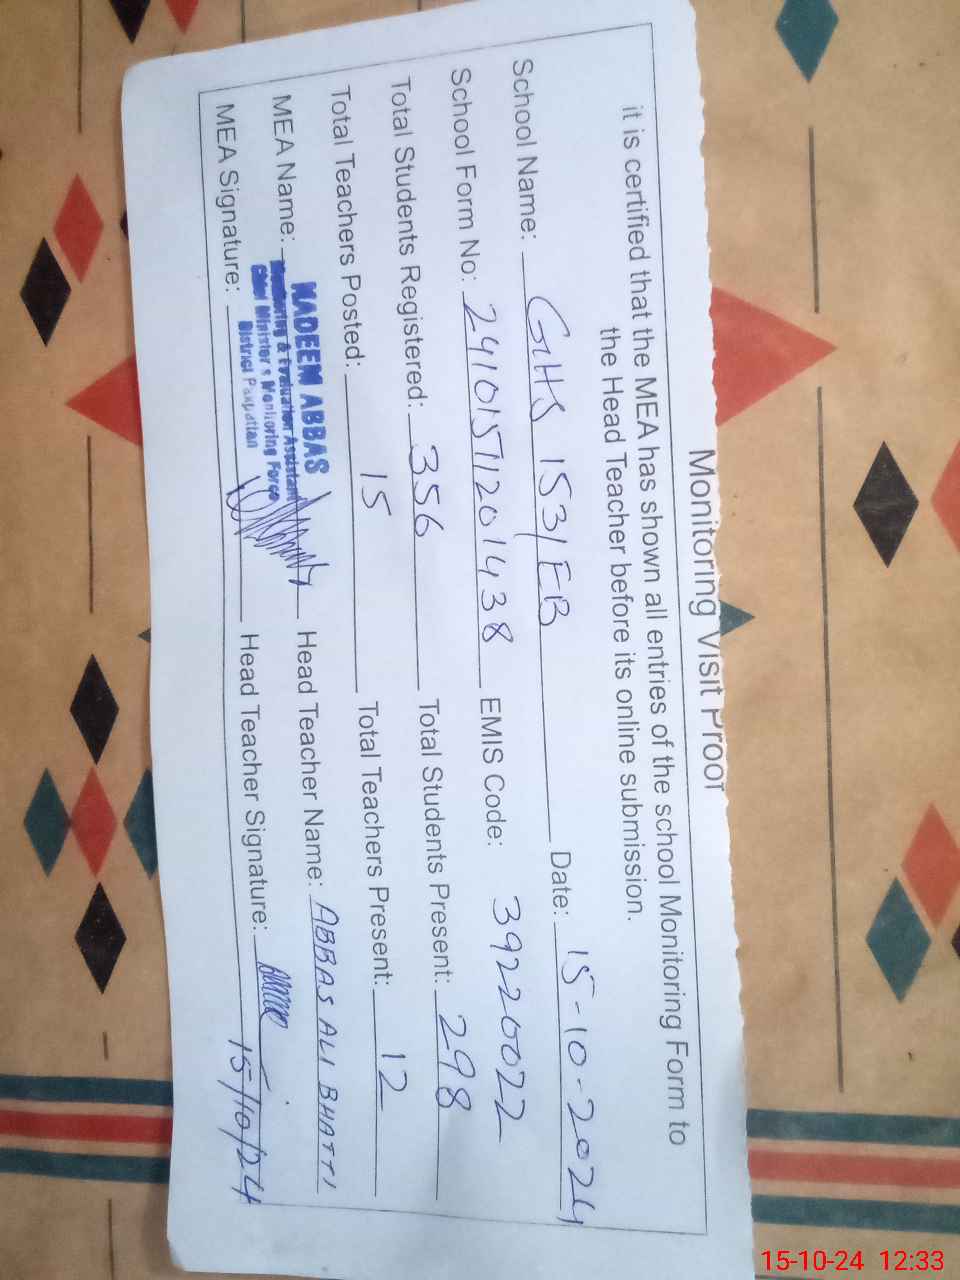 Monitoring Visit Proof
it is certified that the MEA has shown all entries of the school Monitoring Form to
the Head Teacher before its online submission.
School Name: GHS 153/EB Date: 15-10-2024
School Form No: 2410151201438 EMIS Code: 39220022
Total Students Registered: 356 Total Students Present: 298
Total Teachers Posted: 15 Total Teachers Present: 12
MEA Name: NADEEM ABBAS Head Teacher Name: ABBAS ALI BHATTI
Monitoring & Evaluation Assistant
Chief Minister's Monitoring Force
District Pakpattan
MEA Signature: Head Teacher Signature:
15/10/24
15-10-24 12:33